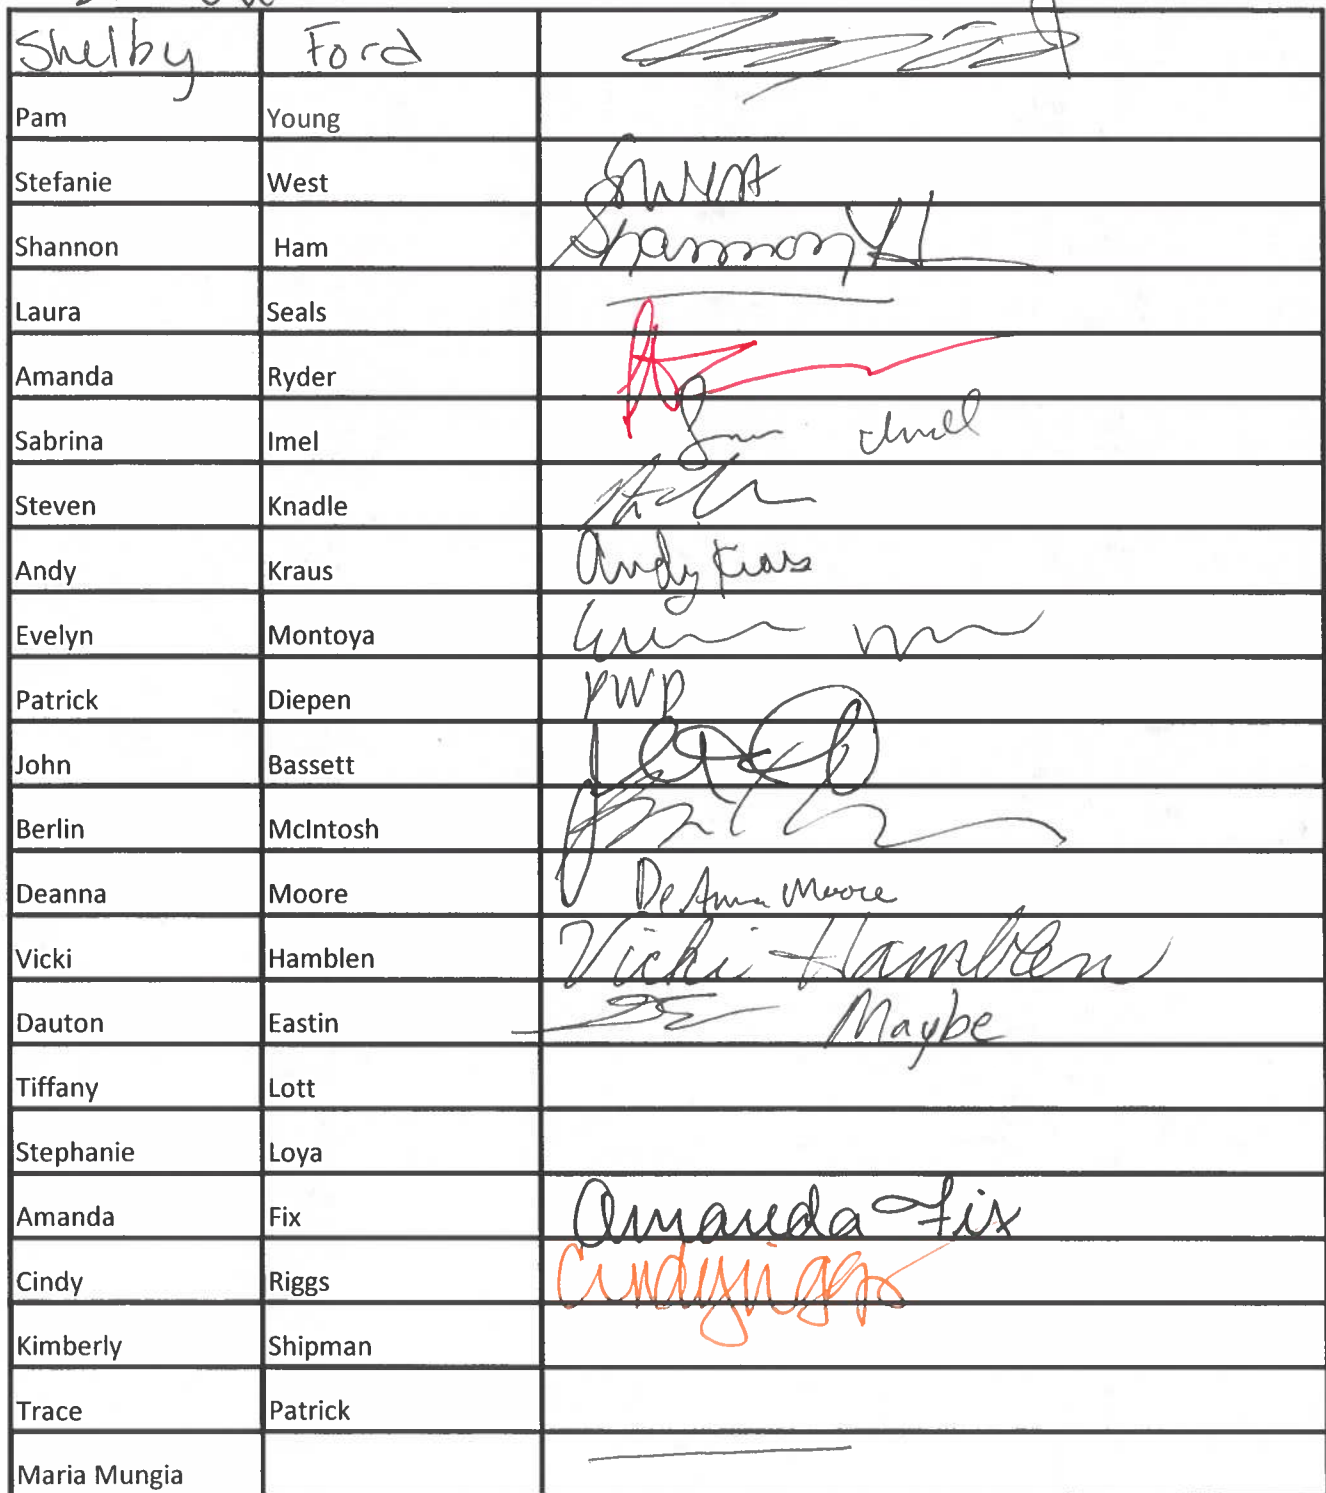 Shelby Ford
Pam Young
Stefanie West SWest
Shannon Ham Shannon H
Laura Seals
Amanda Ryder
Sabrina Imel Imel
Steven Knadle
Andy Kraus Andy Kraus
Evelyn Montoya
Patrick Diepen PWD
John Bassett
Berlin McIntosh
Deanna Moore DeAnna Moore
Vicki Hamblen Vicki Hamblen
Dauton Eastin Maybe
Tiffany Lott
Stephanie Loya
Amanda Fix Amanda Fix
Cindy Riggs Cindy Riggs
Kimberly Shipman
Trace Patrick
Maria Mungia